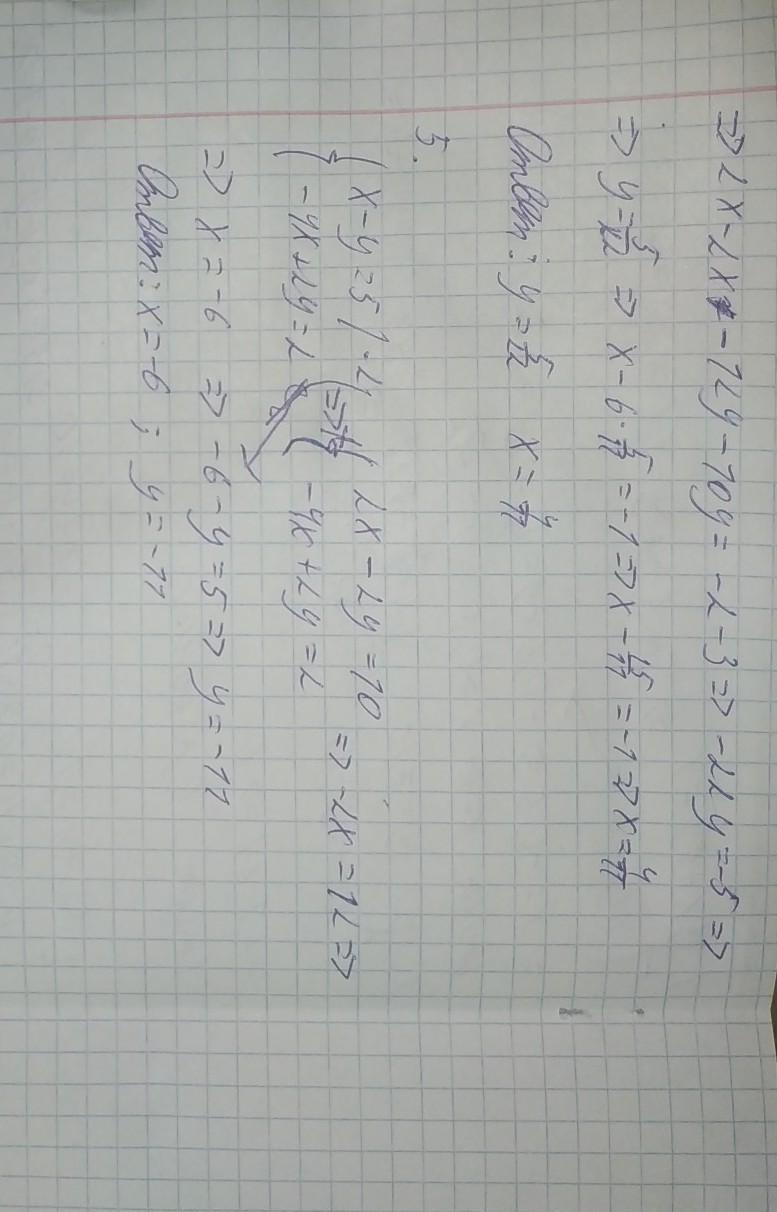 => 2x - 2x - 12y - 10y = -2 - 3 => -22y = -5 =>
=> y = 5/22 => x - 6 · 5/22 = -1 => x - 15/11 = -1 => x = 4/11
Ответ: y = 5/22 x = 4/11
5.
{ x - y = 5 | · 2 => { 2x - 2y = 10
{ -4x + 2y = 2 { -4x + 2y = 2 => -2x = 12 =>
=> x = -6 => -6 - y = 5 => y = -11
Ответ: x = -6 ; y = -11